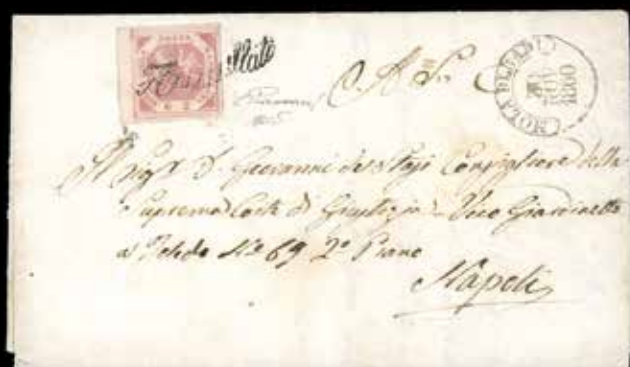 Annullato
MOLA DI
NOV
1860
Al Sig.r D. Giovanni de
Consigliere della
Suprema Corte di Giustizia Vico Giardinetto
a Toledo N.o 69 2.o Piano
Napoli